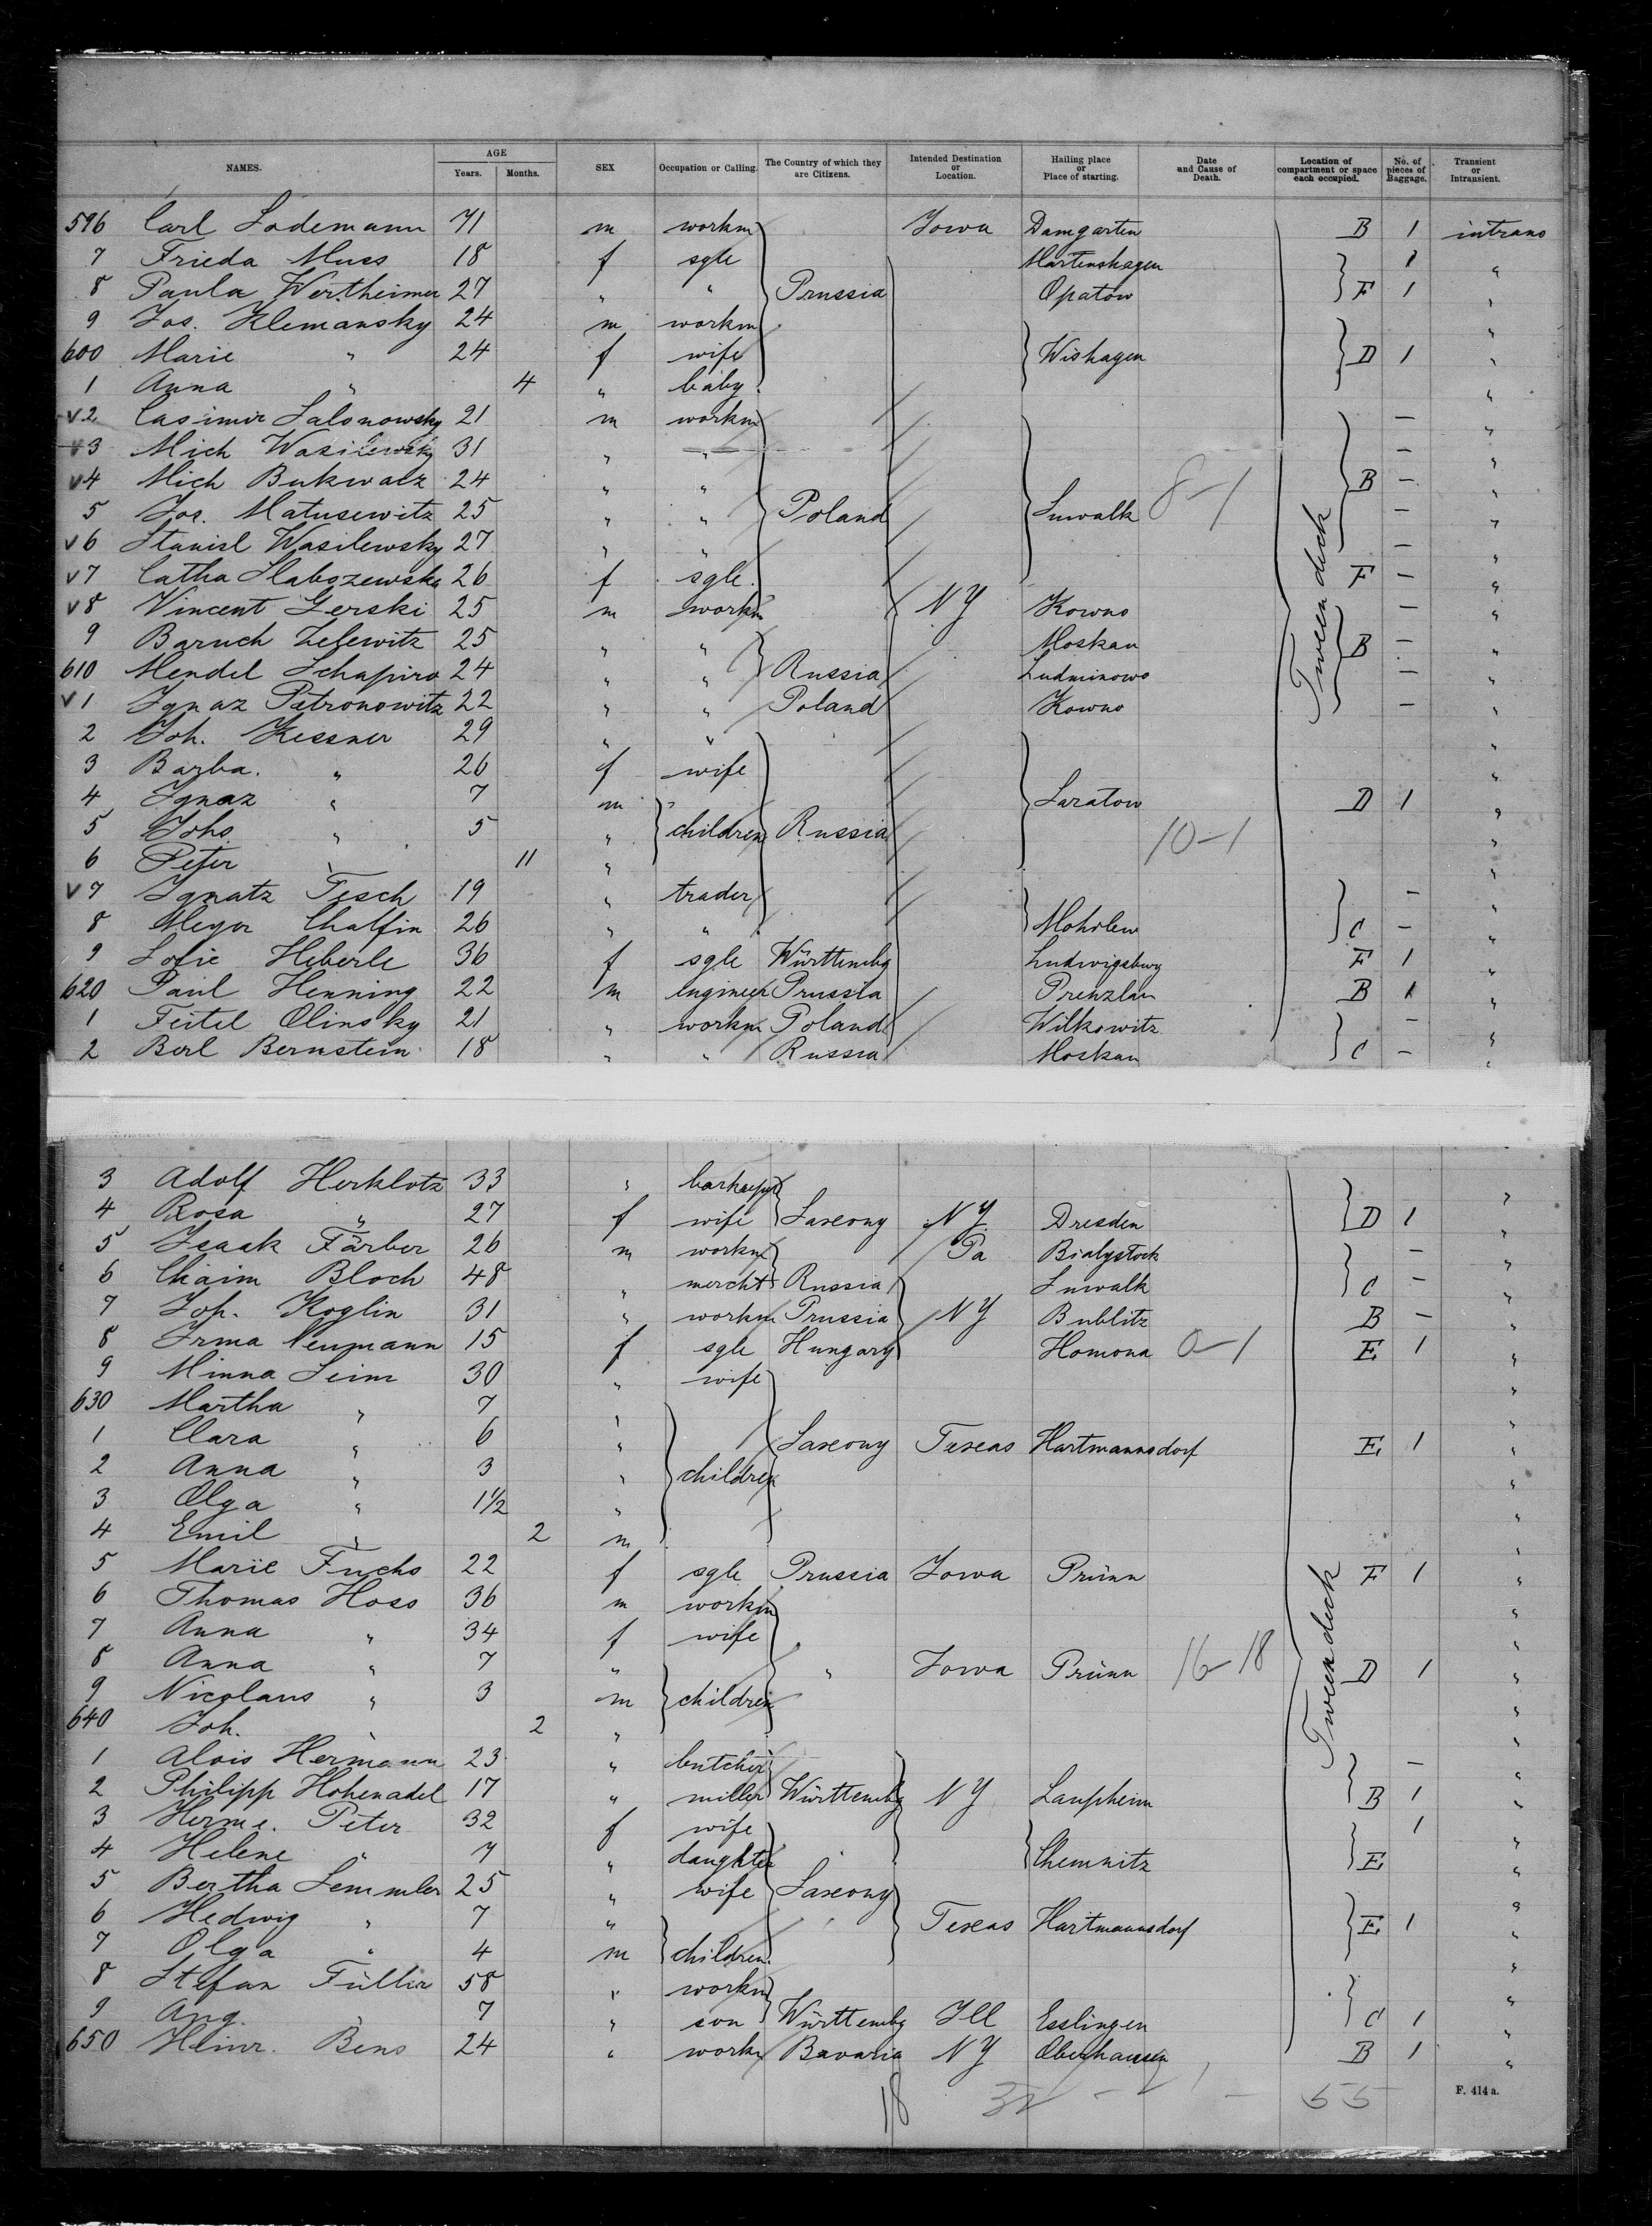 NAMES. AGE Years. Months. SEX Occupation or Calling. The Country of which they are Citizens. Intended Destination or Location. Hailing place or Place of starting. Date and Cause of Death. Location of compartment or space each occupied. No. of pieces of Baggage. Transient or Intransient.
596 Carl Lodemann 71 m workm Iowa Damgarten B 1 intrans
7 Frieda Muss 18 f sgle Martenshagen 1 "
8 Paula Wertheimer 27 " " Prussia Opatow F 1 "
9 Jos. Klemansky 24 m workm "
600 Marie " 24 f wife Wishagen D 1 "
1 Anna " 4 " baby "
v2 Casimir Salonowsky 21 m workm — "
v3 Mich Wasilewsky 31 " " — "
v4 Mich Bukwalz 24 " " B — "
5 Jos. Matusewitz 25 " " Poland Suwalk 8-1 — "
v6 Stanisl Wasilewsky 27 " " — "
v7 Catha Slabozewska 26 f sgle F — "
v8 Vincent Gerski 25 m workm NY Kowno Tween deck — "
9 Baruch Lelewitz 25 " " Moskau B — "
610 Mendel Schapiro 24 " " Russia Ludminowo — "
v1 Ignaz Petronowitz 22 " " Poland Kowno — "
2 Joh. Kessner 29 " " "
3 Barba. " 26 f wife "
4 Ignaz " 7 m Saratow D 1 "
5 Johs " 5 " children Russia 10-1 "
6 Peter " 11 " "
v7 Ignatz Tesch 19 " trader — "
8 Meyer Chalfin 26 " " Mohilew C — "
9 Sofie Heberle 36 f sgle Württembg Ludwigsburg F 1 "
620 Paul Henning 22 m engineer Prussia Prenzlau B 1 "
1 Feitel Olinsky 21 " workm Poland Wilkowitz — "
2 Berl Bernstein 18 " " Russia Moskau C — "
3 Adolf Herklotz 33 " barkeeper "
4 Rosa " 27 f wife Saxony NY Dresden D 1 "
5 Isaak Färber 26 m workm Pa Bialystock — "
6 Chaim Bloch 48 " mercht Russia Suwalk C — "
7 Joh. Koglin 31 " workm Prussia NY Bublitz B — "
8 Irma Neumann 15 f sgle Hungary Homona 0-1 E 1 "
9 Minna Leim 30 " wife "
630 Martha " 7 " "
1 Clara " 6 " Saxony Texas Hartmannsdorf E 1 "
2 Anna " 3 " children "
3 Olga " 1½ " "
4 Emil " 2 m "
5 Marie Fuchs 22 f sgle Prussia Iowa Prünn F 1 "
6 Thomas Hoss 36 m workm "
7 Anna " 34 f wife "
8 Anna " 7 " " Iowa Prünn 16-18 Tween deck D 1 "
9 Nicolaus " 3 m children "
640 Joh. " 2 " "
1 Alois Hermann 23 " butcher — "
2 Philipp Hohenadel 17 " miller Württembg NY Laupheim B 1 "
3 Herme. Peter 32 f wife 1 "
4 Helene " 7 " daughter Chemnitz E "
5 Bertha Semmler 25 " wife Saxony "
6 Hedwig " 7 " Texas Hartmannsdorf E 1 "
7 Olga " 4 m children "
8 Stefan Füller 58 " workm "
9 Aug. " 7 " son Württembg Ill Esslingen C 1 "
650 Heinr. Bens 24 " workm Bavaria NY Oberhausen B 1 "
18 32 — 55
F. 414 a.